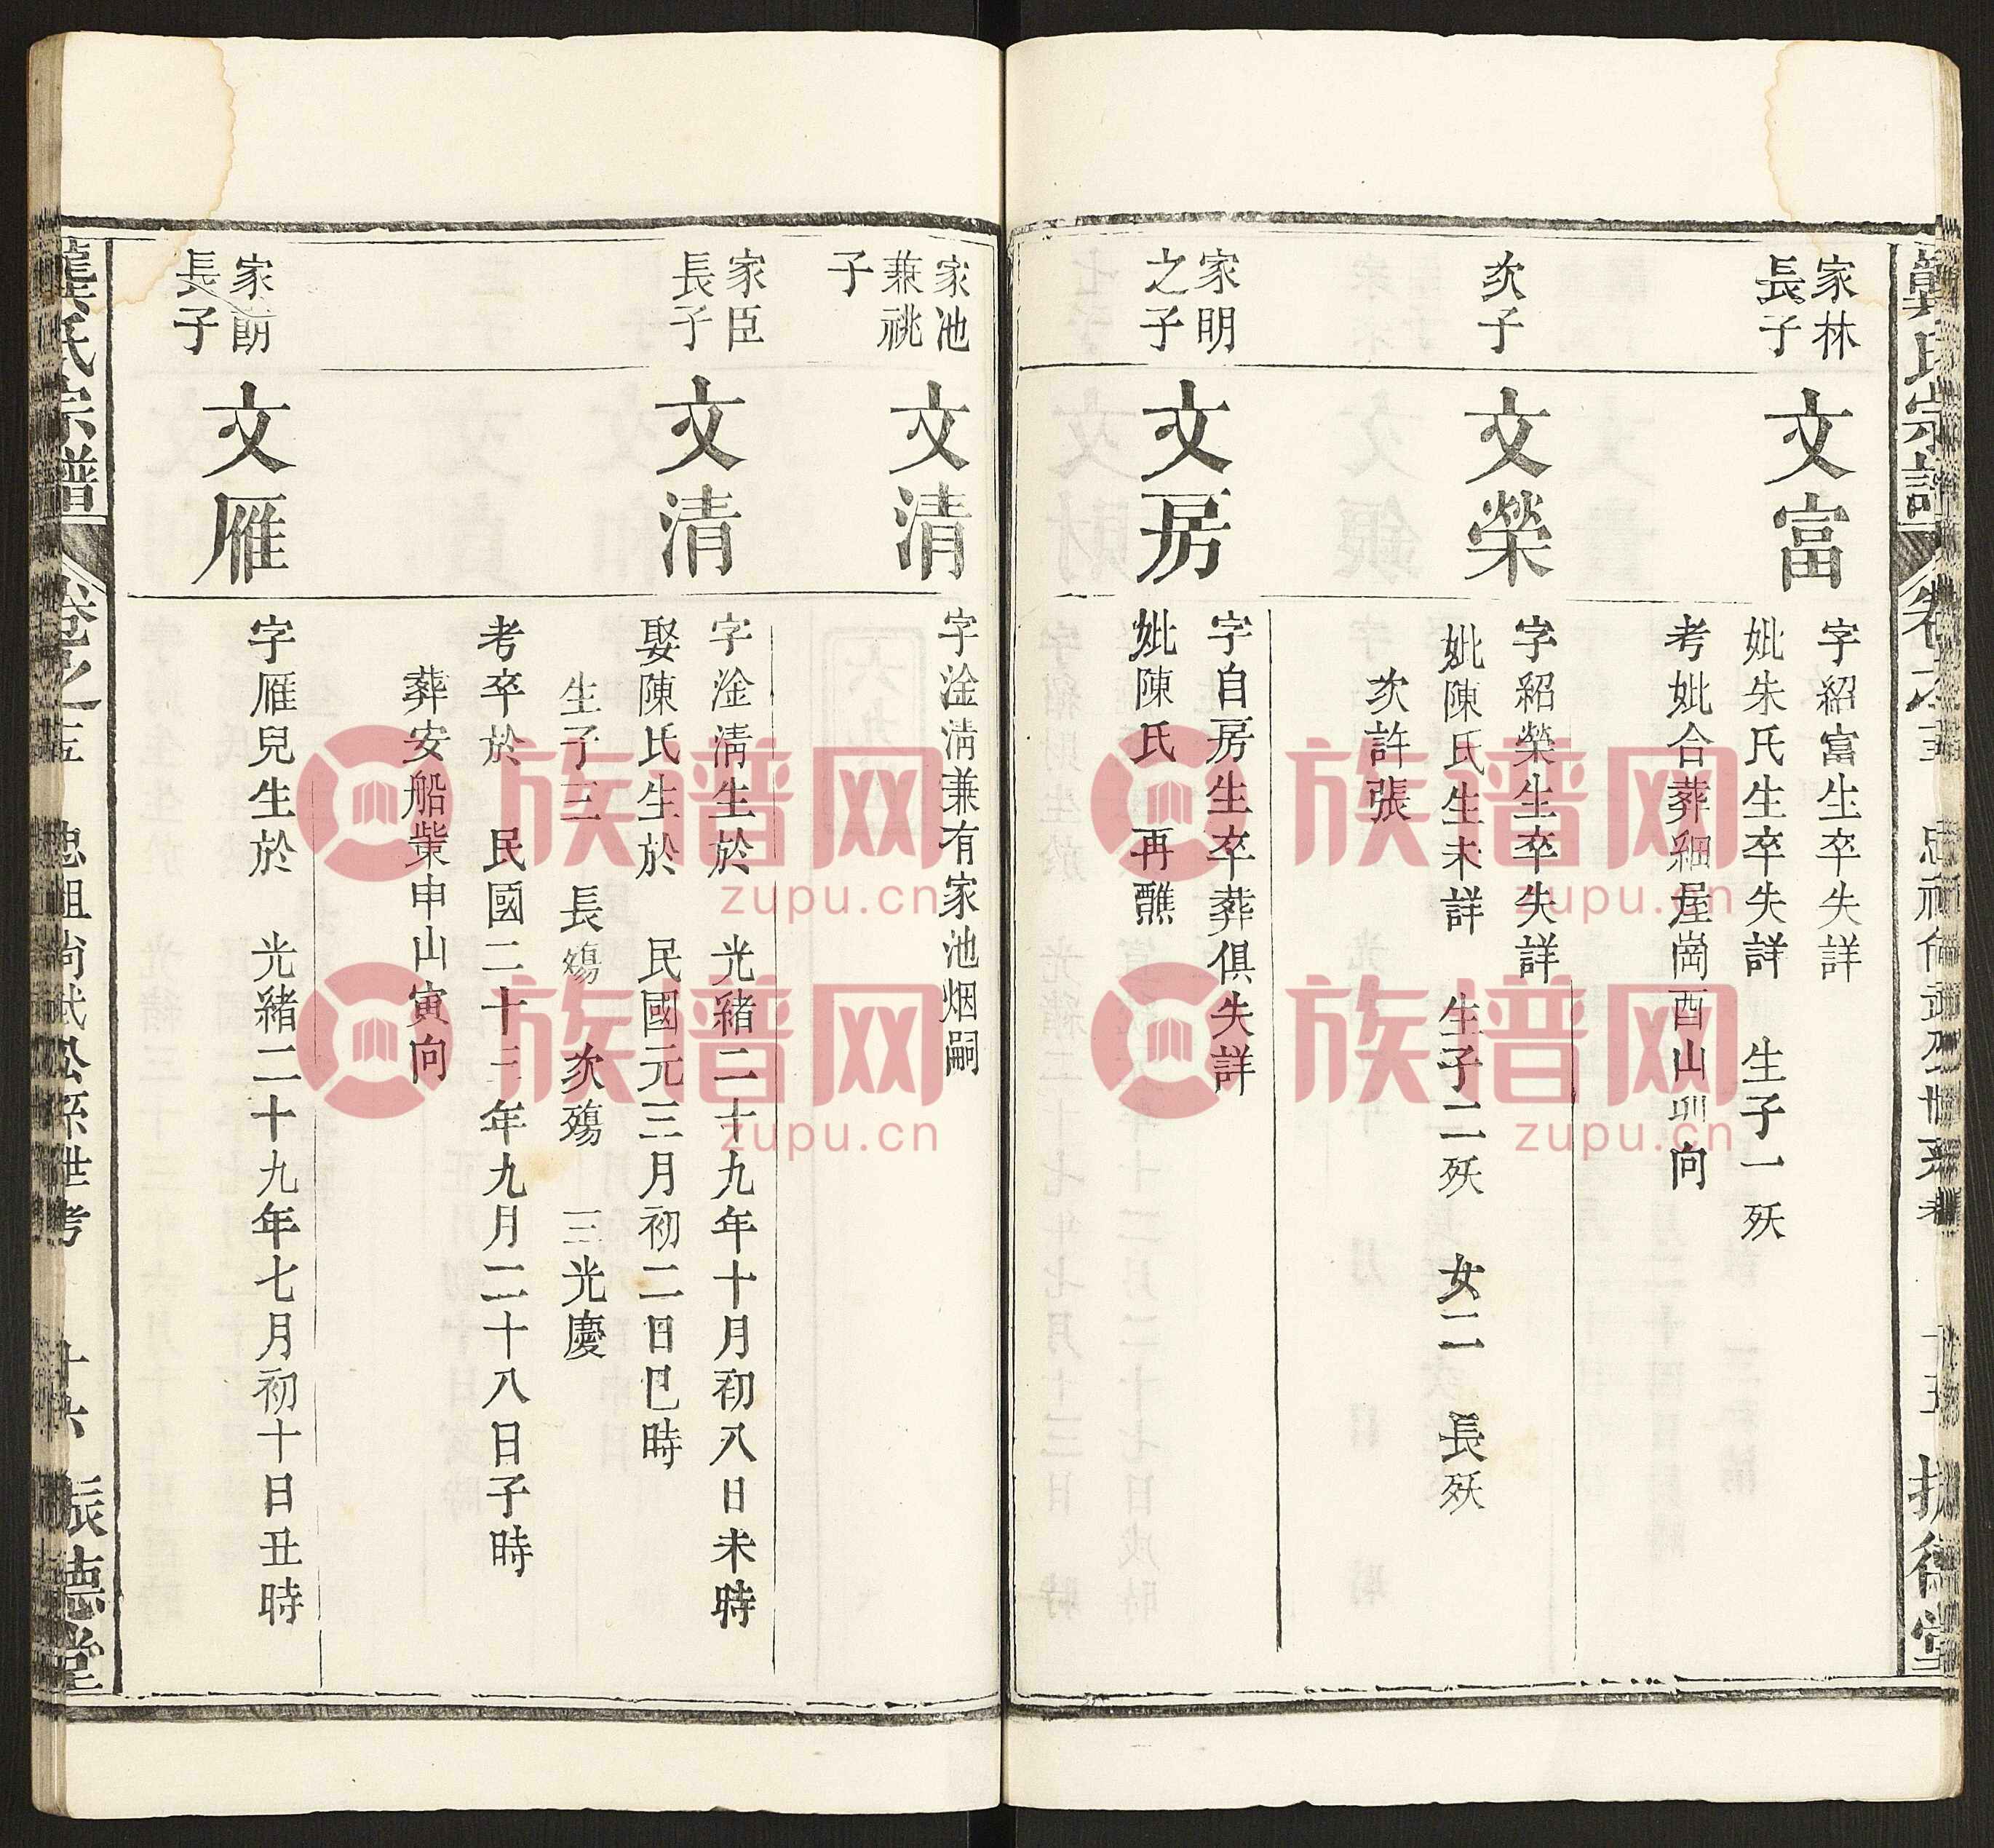 龔氏宗譜
卷之五
十五
振德堂
家林
長子
文富
字紹富生卒失詳
妣朱氏生卒失詳 生子一殀
考妣合葬細屋崗酉山卯向
次子
文榮
字紹榮生卒失詳
妣陳氏生未詳 生子二殀 女二 長殀
次許張
家明
之子
文房
字自房生卒葬俱失詳
妣陳氏 再醮
家池
兼祧
子
文清
字淦清兼有家池烟嗣
家臣
長子
文清
字淦清生於 光緒二十九年十月初八日未時
娶陳氏生於 民國元三月初二日巳時
生子三 長殤 次殤 三光慶
考卒於 民國二十三年九月二十八日子時
葬安船業申山寅向
長子
文雁
字雁兒生於 光緒二十九年七月初十日丑時
龔氏宗譜
卷之五
忠祖尚武公系世考
十六
振德堂
族谱网
zupu.cn
族谱网
zupu.cn
族谱网
zupu.cn
族谱网
zupu.cn